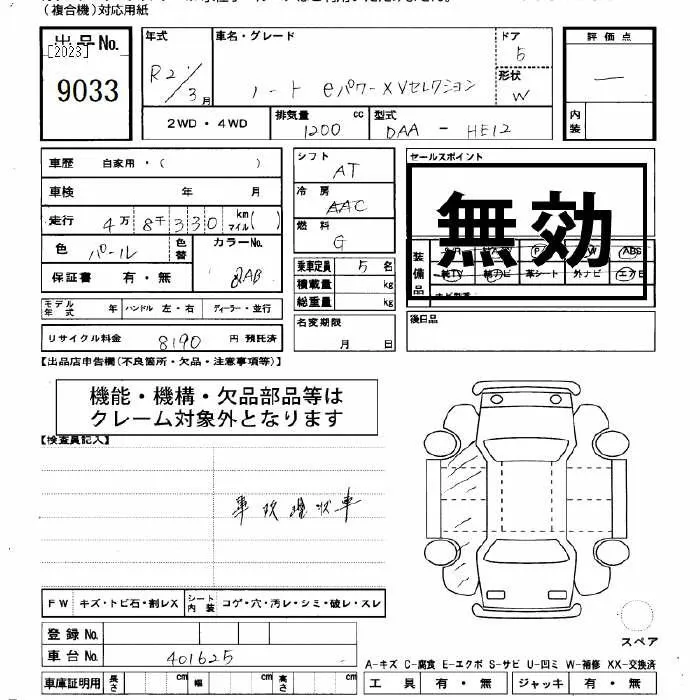 (複合機)対応用紙
出品No.
[2023]
9033
年式
R2/3月
車名・グレード
ノート eパワーXVセレクション
ドア
5
形状
W
評価点
内装
2WD・4WD
排気量 cc
1200
型式
DAA - HE12
車歴 自家用・( )
車検 年 月
走行 4万8千330 km マイル( )
色 パール 色替 カラーNo. QAB
保証書 有・無
モデル年式 年 ハンドル 左・右 ディーラー・並行
リサイクル料金 8190 円 預託済
シフト
AT
冷房
AAC
燃料
G
乗車定員 5 名
積載量 kg
総重量 kg
名変期限
月 日
セールスポイント
無効
装備品
ABS
革シート 外ナビ エアB
後日品
【出品店申告欄(不良箇所・欠品・注意事項等)】
機能・機構・欠品部品等は
クレーム対象外となります
【検査員記入】
FW キズ・トビ石・割レX シート内装 コゲ・穴・汚レ・シミ・破レ・スレ
登録No.
車台No. 401625
車庫証明用 長さ cm 幅 cm 高さ cm
スペア
A-キズ C-腐食 E-エクボ S-サビ U-凹ミ W-補修 XX-交換済
工具 有・無 ジャッキ 有・無